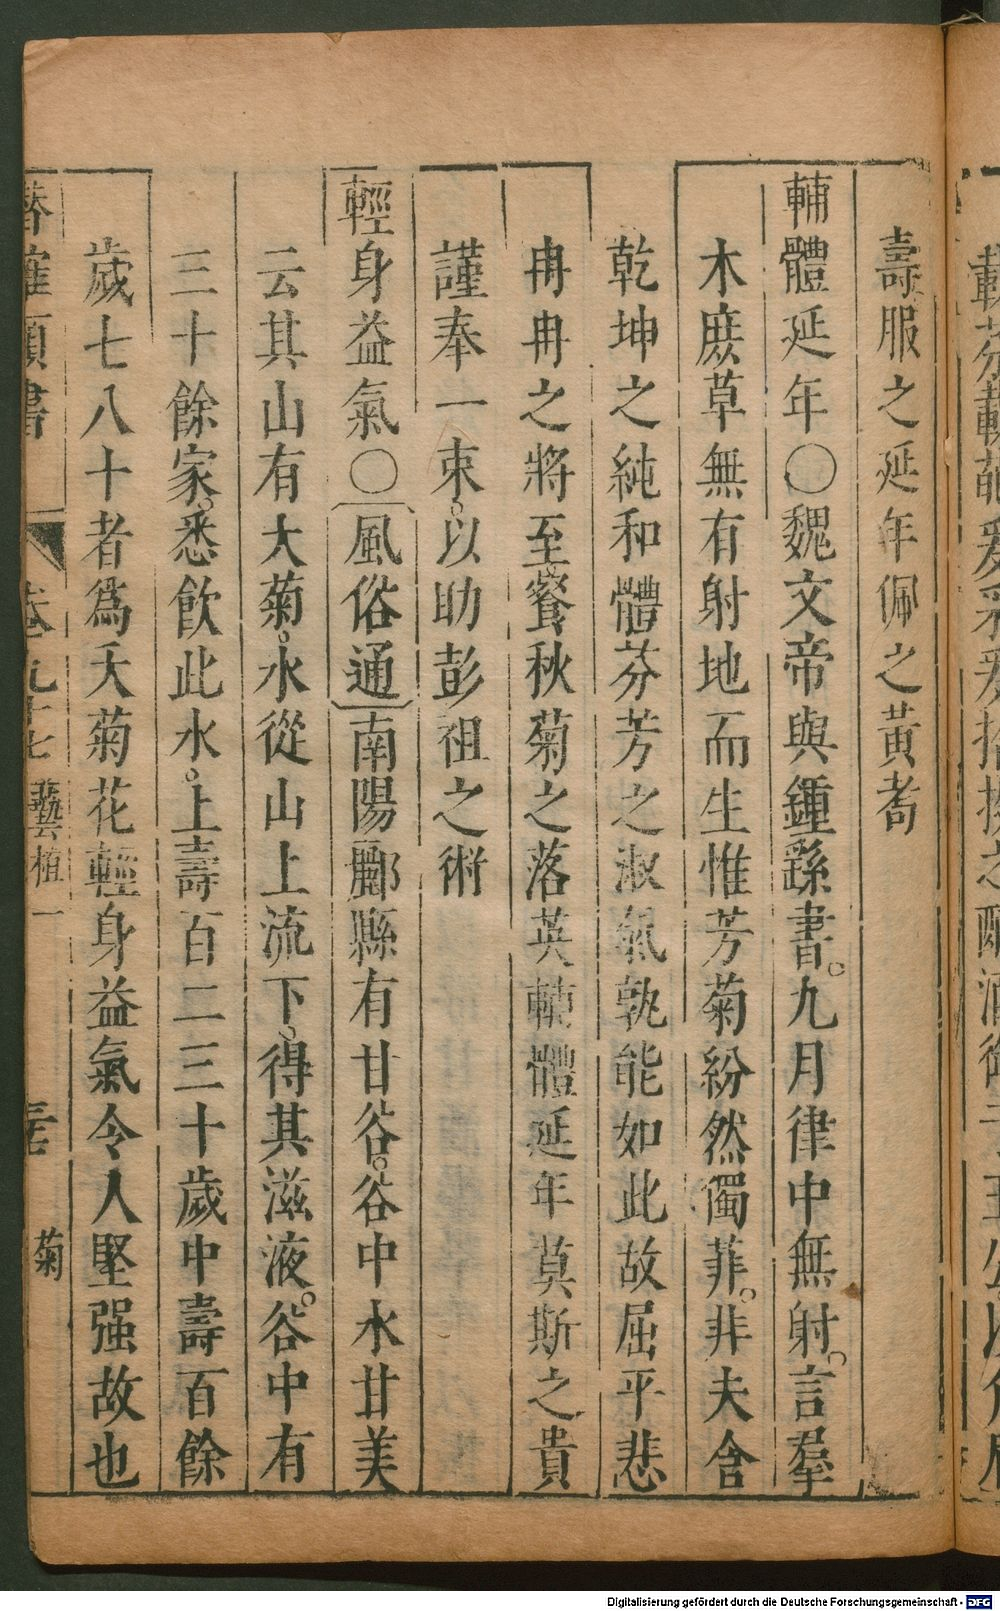 壽服之延年佩之黃耇
輔體延年○魏文帝與鍾繇書。九月律中無射。言羣
木庶草無有射地而生惟芳菊紛然獨菲。非夫含
乾坤之純和體芬芳之淑氣孰能如此故屈平悲
冉冉之將至。餐秋菊之落英輔體延年莫斯之貴
謹奉一束。以助彭祖之術
輕身益氣○風俗通南陽酈縣有甘谷。谷中水甘美
云其山有大菊。水從山上流下。得其滋液。谷中有
三十餘家。悉飲此水。上壽百二三十歲中壽百餘
歲七八十者爲夭菊花輕身益氣令人堅强故也
類書 卷九十七 藝植一 菊
Digitalisierung gefördert durch die Deutsche Forschungsgemeinschaft - DFG